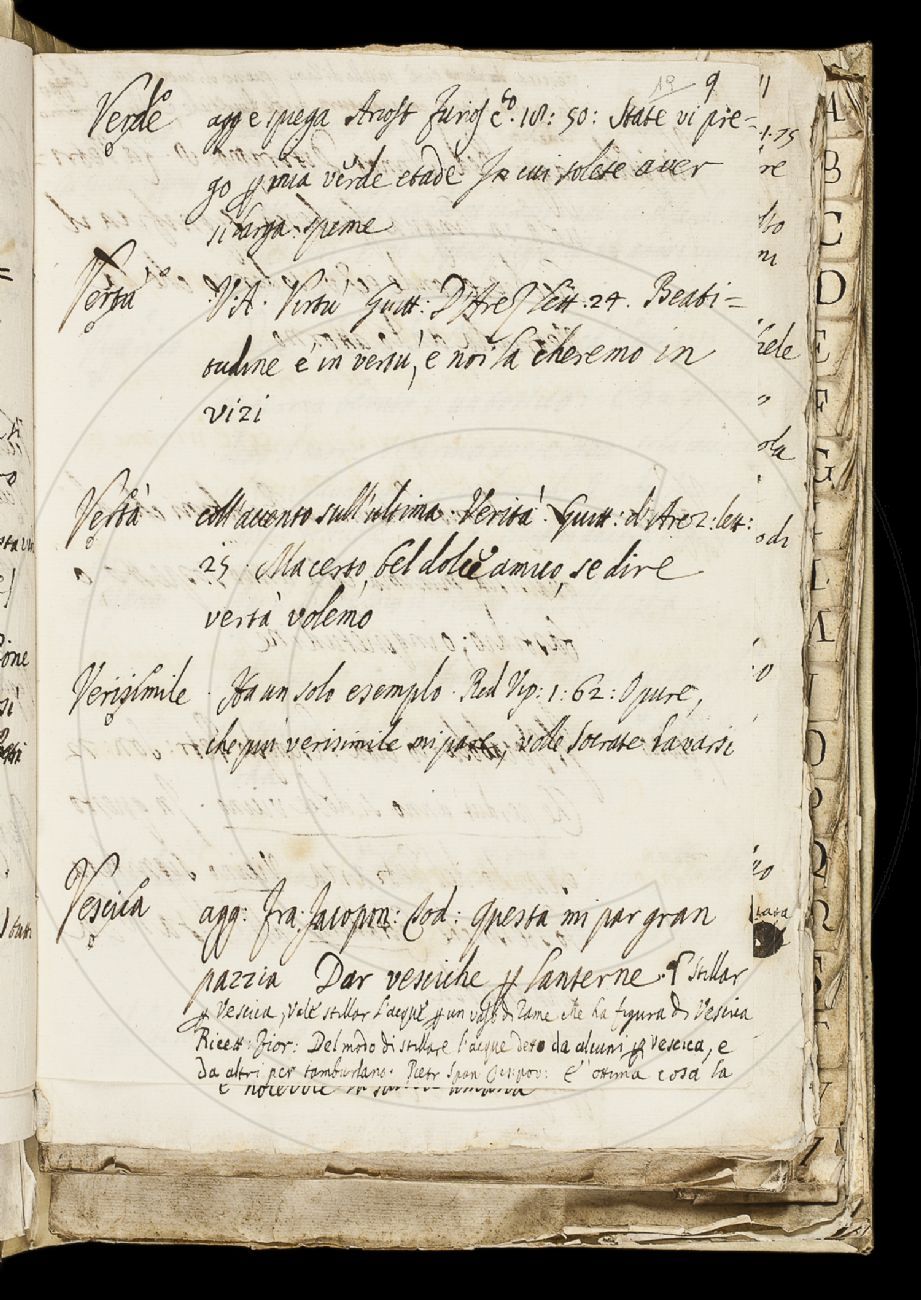 19 9
Verde agg e spiega Ariost Furios cto. 18: 50: State vi pre=
go p mia verde etade In cui solete aver
sì larga speme
Vertù V: A. Virtù Guitt: D'Arez lett: 24. Beati=
tudine è in vertù, e noi la cheremo in
vizi
Vertà coll'accento sull'ultima. Verità. Guitt: d'Arez: lett:
25. Ma certo, bel dolce amico, se dire
vertà volemo
Verisimile. Ha un solo esempio. Red Vip: 1: 62: Opure,
che più verisimile mi pare, volle Socrate lavarsi
Vescica agg: Fra: Jacopon: Cod: questa mi par gran
pazzia Dar vesciche p lanterne. § Stillar
p Vescica, vale stillar l'acque p un vaso di rame che ha figura di Vescica
Ricett: Fior: Del modo di stillare l'acque detto da alcuni p vescica, e
da altri per tamburlano. Pietr Span È ottima cosa la
A
B
C
D
E
F
G